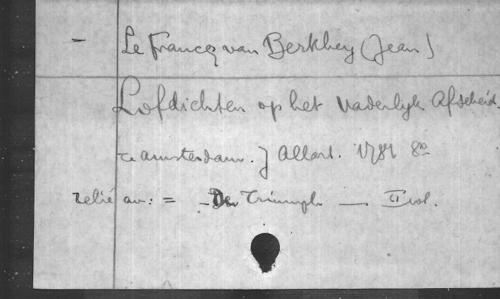 — Le Francq van Berkhey (Jean)
Lofdichten op het vaderlijk Afscheid.
te Amsterdam. J Allart. 1781 8o
relié av: = — De Triumph — II vol.